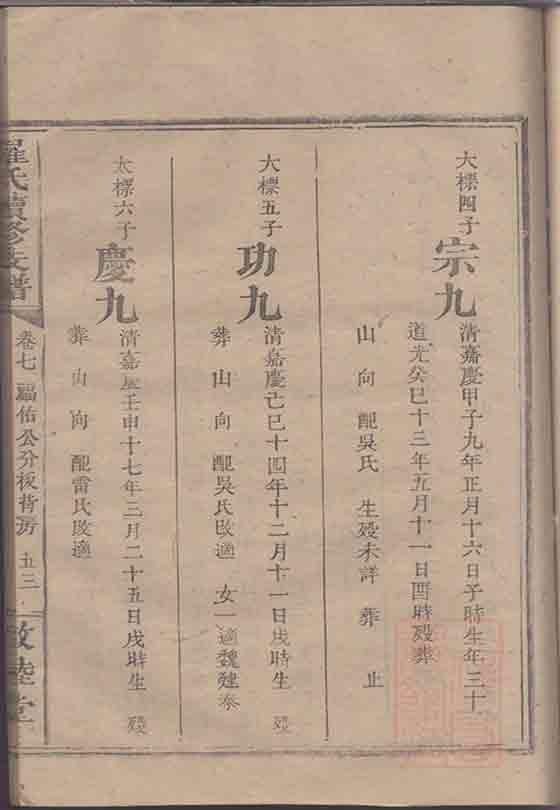 大標四子
宗九
清嘉慶甲子九年正月十六日子時生年三十
道光癸巳十三年五月十一日酉時殁葬
山向 配吳氏 生殁未詳 葬 止
大標五子
功九
清嘉慶己巳十四年十二月十一日戌時生 殁
葬 山 向 配吳氏改適 女一適魏建泰
大標六子
慶九
清嘉慶壬申十七年三月二十五日戌時生 殁
葬 山 向 配雷氏改適
羅氏續修支譜
卷七 福佑公分板背房 五三
敦睦堂